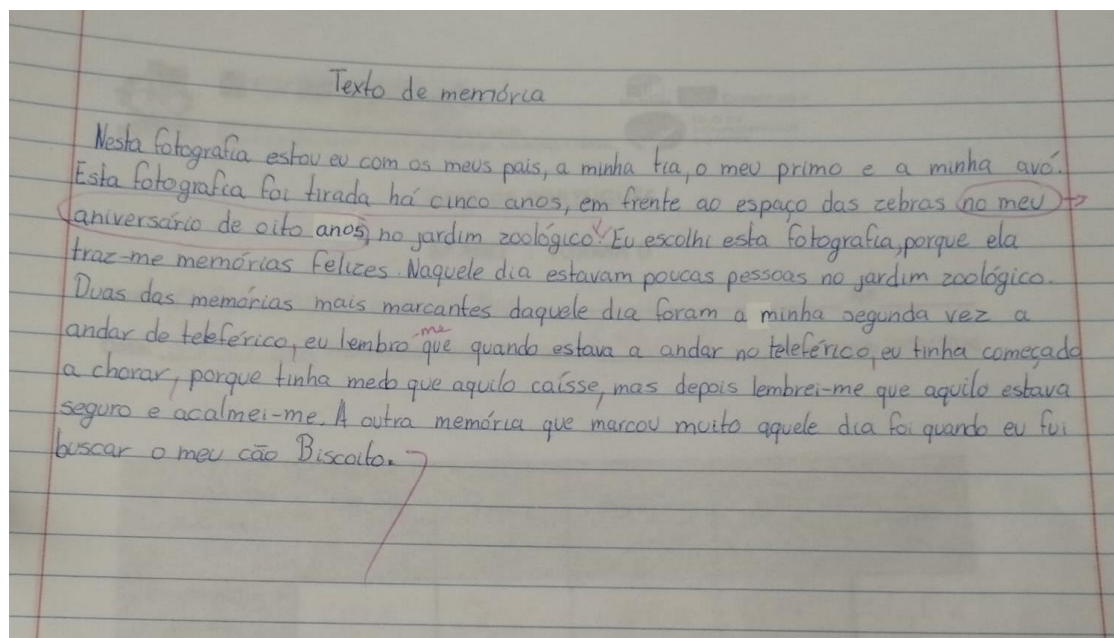 Texto de memória
Nesta fotografia estou eu com os meus pais, a minha tia, o meu primo e a minha avó.
Esta fotografia foi tirada há cinco anos, em frente ao espaço das zebras no meu
aniversário de oito anos, no jardim zoológico. Eu escolhi esta fotografia, porque ela
traz-me memórias felizes. Naquele dia estavam poucas pessoas no jardim zoológico.
Duas das memórias mais marcantes daquele dia foram a minha segunda vez a
andar de teleférico, eu lembro-me que quando estava a andar no teleférico, eu tinha começado
a chorar, porque tinha medo que aquilo caísse, mas depois lembrei-me que aquilo estava
seguro e acalmei-me. A outra memória que marcou muito aquele dia foi quando eu fui
buscar o meu cão Biscoito.